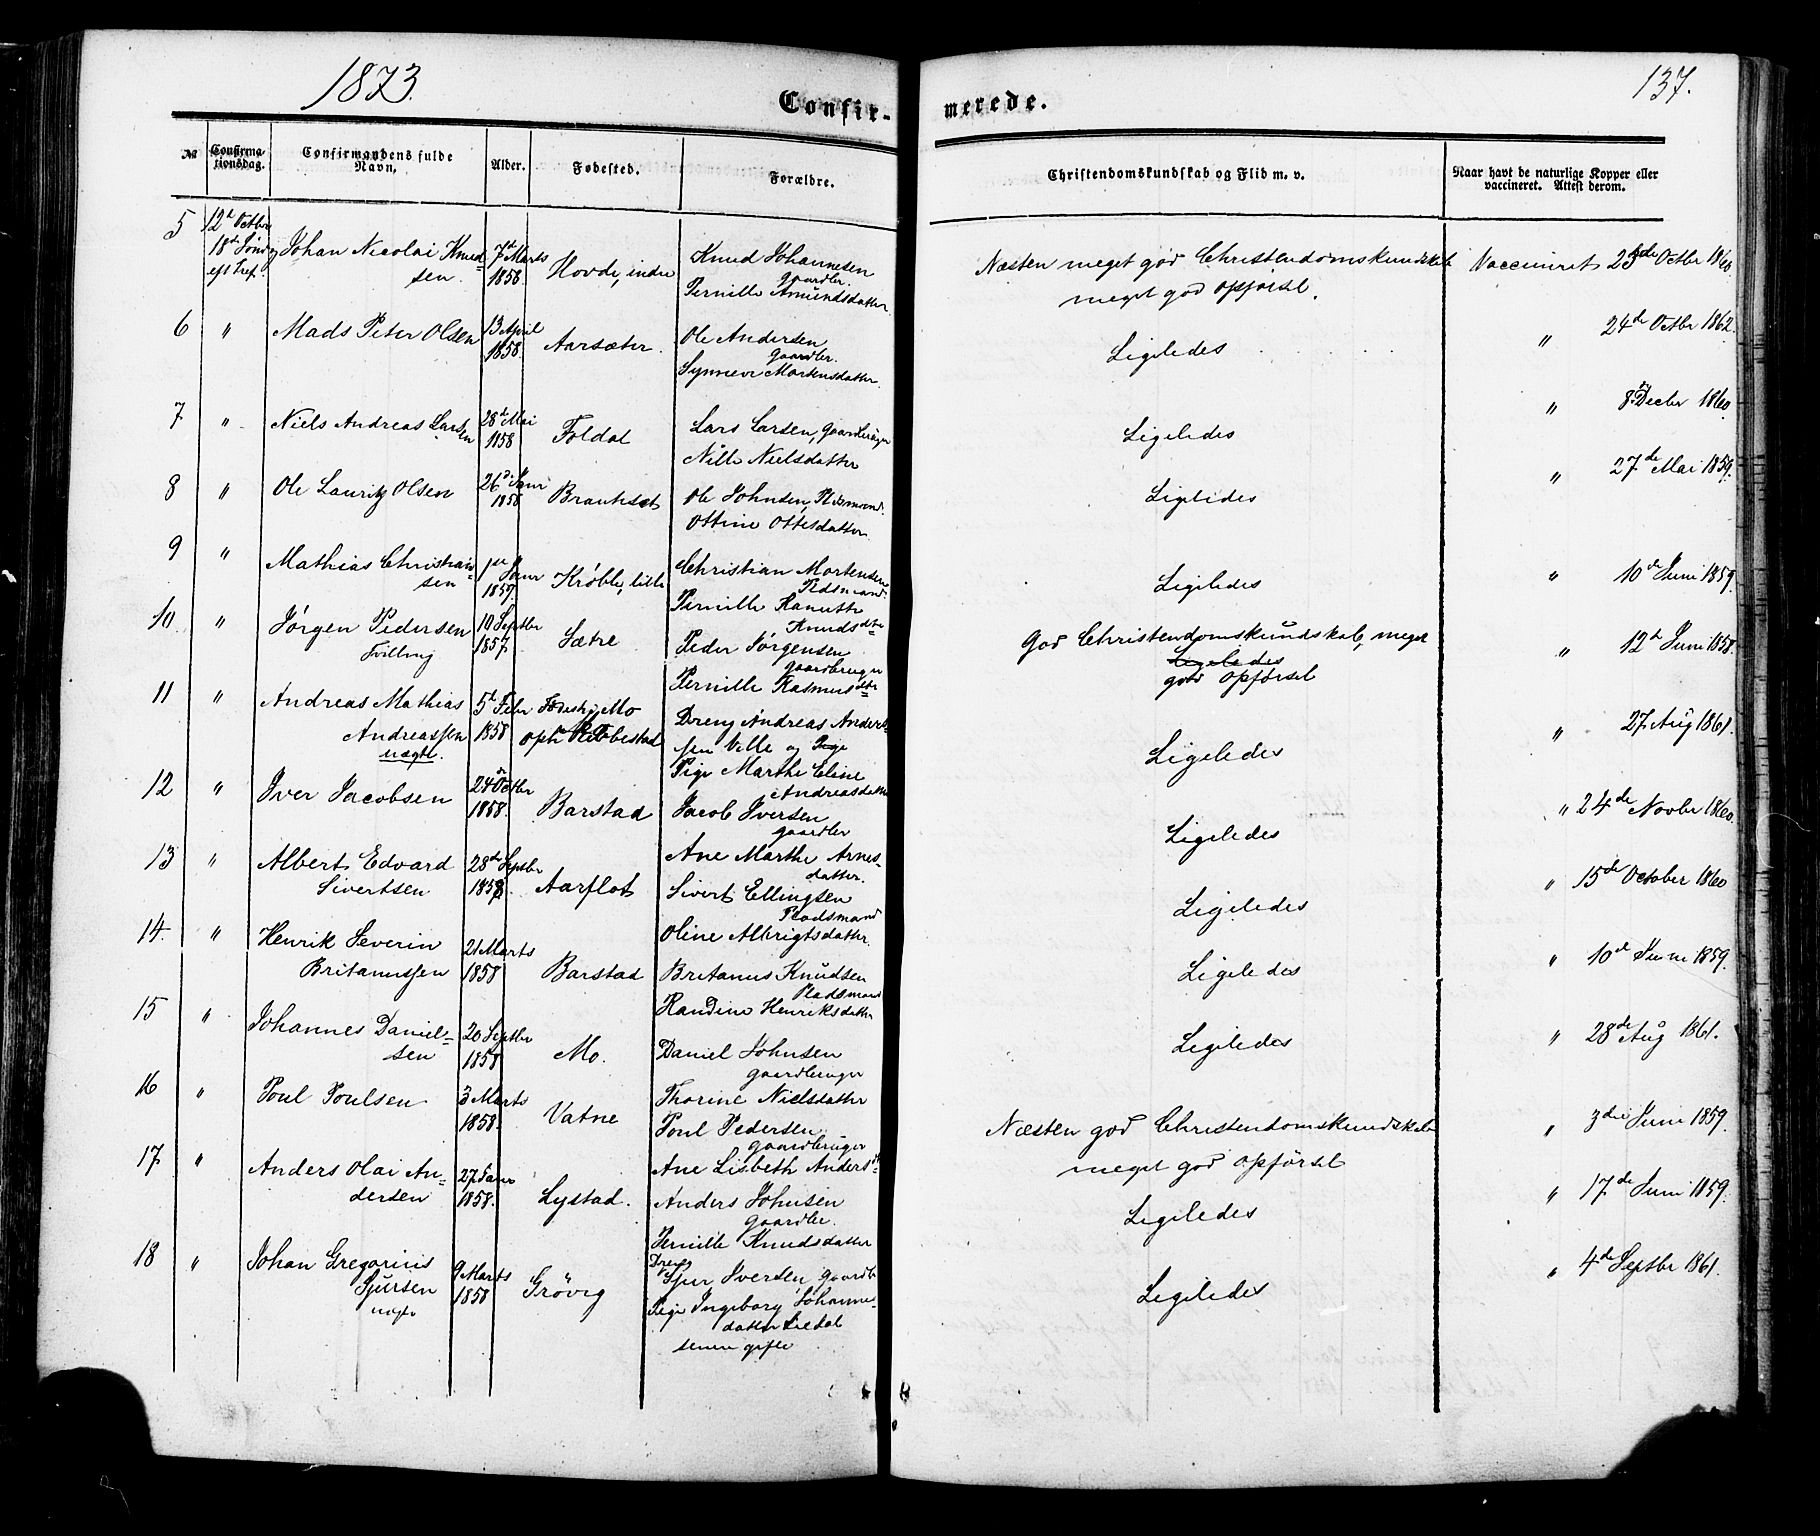 1873.
137.
Confir-
merede.
№
Confirmationsdag.
Confirmandens fulde Navn.
Alder.
Fødested.
Forældre.
Christendomskundskab og Flid m. v.
Naar havt de naturlige Kopper eller vaccineret. Attest derom.
5 12te Octbr 18de Sønd eft Tref. Johan Nicolai Knudsen. 7de Marts 1858 Hovde, indre Knud Johannesen gaardbr. Pernille Amundsdatter Næsten meget god Christendomskundskab meget god opførsel. Vaccineret 23de Octbr 1860
6 " Mads Peter Olsen 13 April 1858 Aarsæter. Ole Andersen gaardbr. Synneve Mortensdatter. Ligeledes " 24de Octbr 1862.
7 " Niels Andreas Larsen 28de Mai 1858 Foldal Lars Larsen, gaardbruger Nille Nielsdatter Ligeledes " 8de Decbr 1860.
8 " Ole Lauritz Olsen 26de Janr 1858 Ole Johnsen, Pladsmand. Ottine Ottesdatter Ligeledes " 27de Mai 1859.
9 " Mathias Christiansen 1ste Janr 1859. Krøvle, lille Christian Mortensen Pladsmand. Pernille Knudsdtr Ligeledes " 10de Juni 1859.
10. " Jørgen Pedersen Tvilling 10 Septbr 1857 Sætre Peder Jørgensen gaardbruger Pernille Rasmusdtr God Christendomskundskab, meget Ligeledes god opførsel " 12te Juni 1858.
11 " Andreas Mathias Andreassen uægte. 5te Febr 1858 Fødested Mo oph Ribbestad Dreng Andreas Andersen Velle og Pige Pige Marthe Eline Andreasdatter Ligeledes " 27 Aug 1861.
12 " Iver Jacobsen 24de Octbr 1858 Barstad Jacob Iversen gaardbr Ane Marthe Arnesdatter. Ligeledes " 24de Novbr 1860.
13 " Albert Edvard Sivertsen 28de Septbr 1858. Aarflot Sivert Ellingsen Pladsmand Oline Albrigtsdatter. Ligeledes " 15de October 1860
14. " Henrik Severin Britanussen 21 Marts 1858 Barstad Britanus Knudsen Pladsmand Randine Henriksdatter Ligeledes " 10de Juni 1859.
15 " Johannes Danielsen 20 Septbr 1858 Mo. Daniel Johnsen gaardbruger Thorine Nielsdatter Ligeledes " 28de Aug 1861.
16 " Poul Poulsen 3 Marts 1858. Vatne Poul Pedersen gaardbruger Ane Lisbeth Andersdtr Næsten god Christendomskundskab meget god opførsel " 3die Juni 1859.
17. " Anders Olai Andersen 27 Janr 1858. Lystad. Anders Johnsen gaardbr. Pernille Knudsdatter Ligeledes " 17de Juni 1859.
18 " Johan Gregorius Sjursen uægte 9 Marts 1858 Grøvig Dreng Sjur Iversen, gaardb Pige Ingeborg Johannesdatter Liedal senere gifte Ligeledes " 4de Septbr 1861.